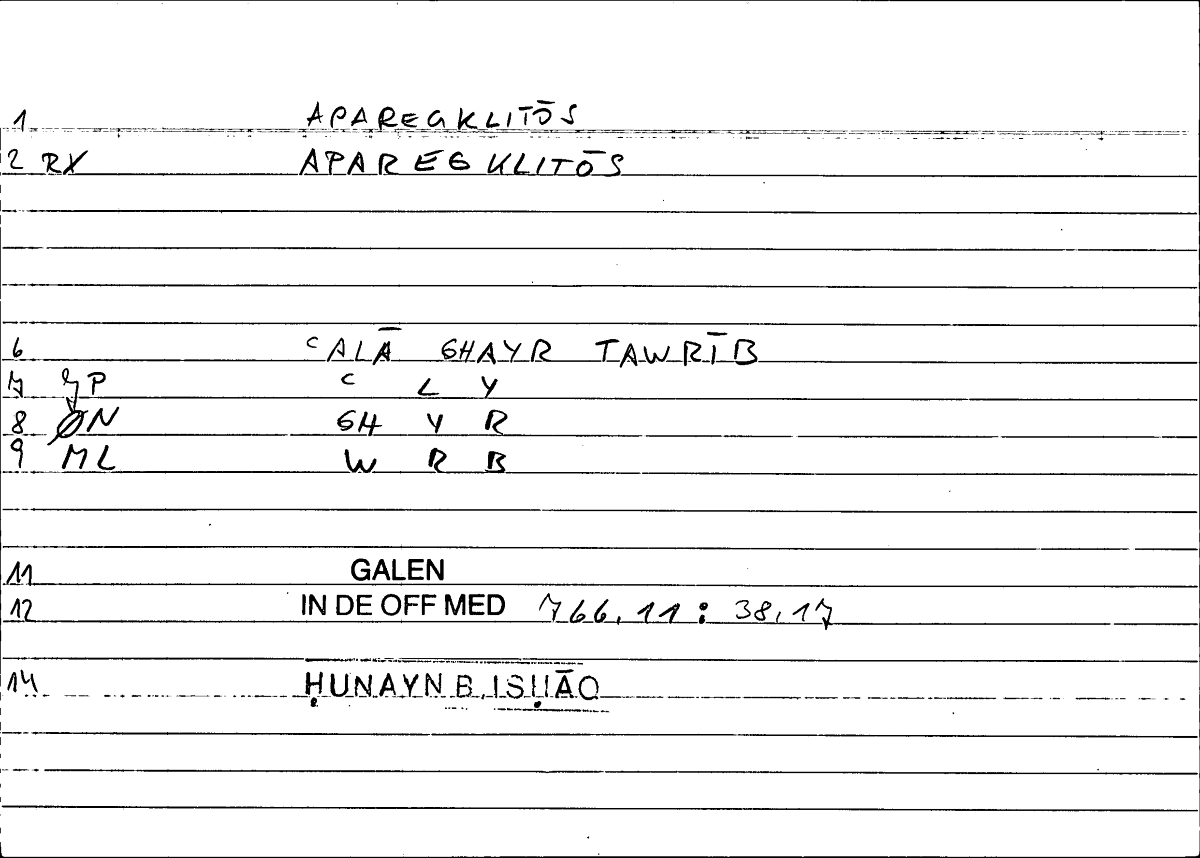 1 APAREGKLITŌS
2 RX APAREGKLITŌS
6 ᶜALĀ GHAYR TAWRĪB
7 P ᶜ L Y
8 ØN GH Y R
9 ML W R B
11 GALEN
12 IN DE OFF MED 766,11 : 38,17
14 ḤUNAYN B. ISḤĀQ